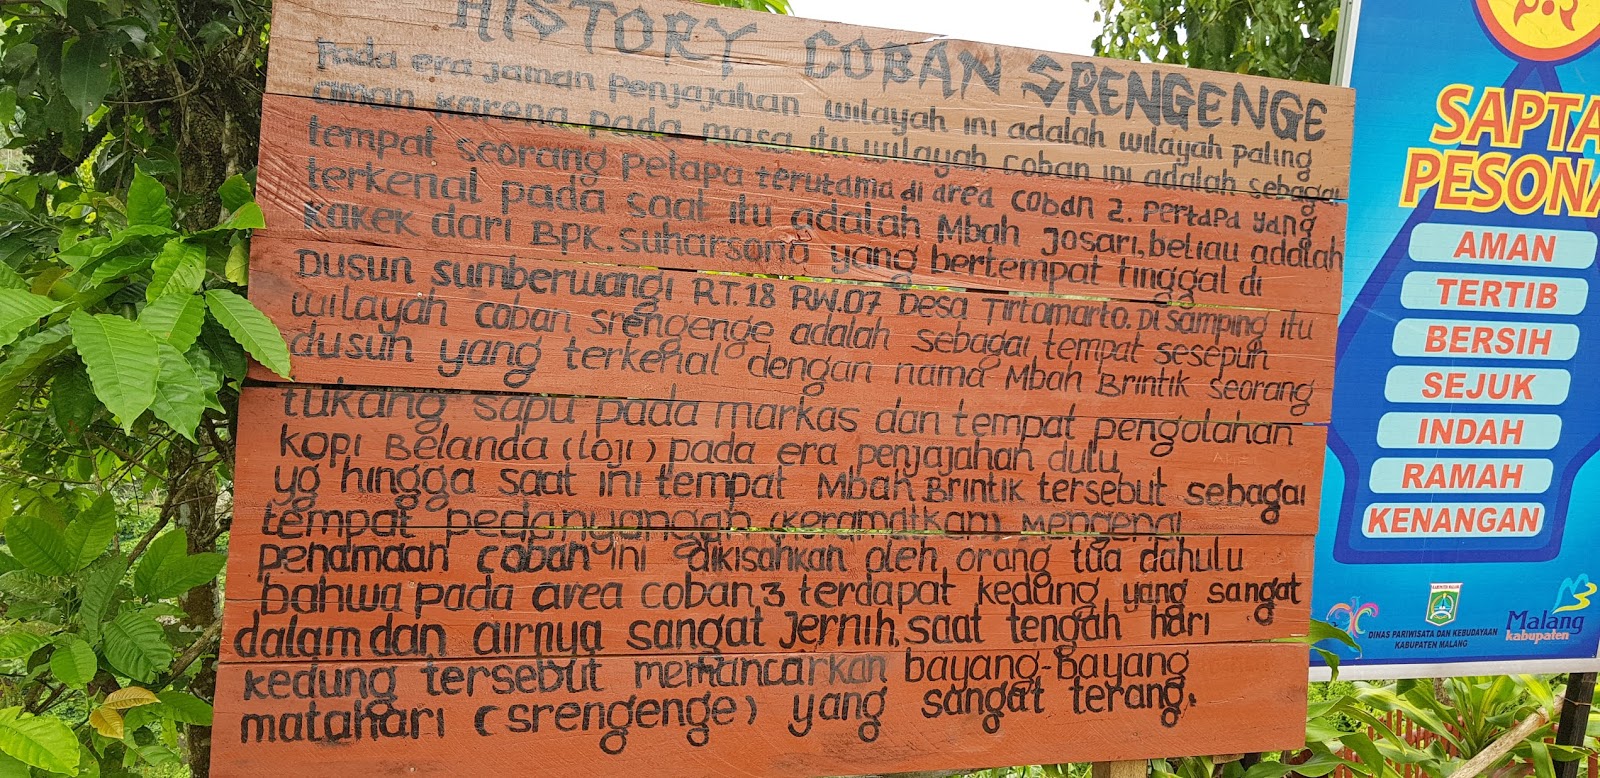 HISTORY COBAN SRENGENGE
Pada era jaman penjajahan wilayah ini adalah wilayah paling
aman karena pada masa itu wilayah coban ini adalah sebagai
tempat seorang petapa terutama di area coban 2. Pertapa yang
terkenal pada saat itu adalah Mbah Josari, beliau adalah
kakek dari BPK. Suharsono yang bertempat tinggal di
Dusun sumberwangi RT.18 RW.07 Desa Tirtomarto. Di samping itu
wilayah coban srengenge adalah sebagai tempat sesepuh
dusun yang terkenal dengan nama Mbah Brintik seorang
tukang sapu pada markas dan tempat pengolahan
kopi Belanda (loji) pada era penjajahan dulu
yg hingga saat ini tempat Mbah Brintik tersebut sebagai
tempat pedanyangan (keramatkan) Mengenai
penamaan coban ini dikisahkan oleh orang tua dahulu
bahwa pada area coban 3 terdapat kedung yang sangat
dalam dan airnya sangat Jernih, saat tengah hari
kedung tersebut memancarkan bayang-bayang
matahari (srengenge) yang sangat terang.
SAPTA
PESONA
AMAN
TERTIB
BERSIH
SEJUK
INDAH
RAMAH
KENANGAN
DINAS PARIWISATA DAN KEBUDAYAAN
KABUPATEN MALANG
Malang
kabupaten